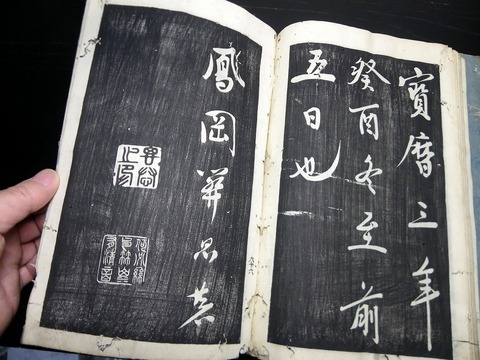 寶曆三年
癸酉冬至前
五日也
鳳岡關思恭